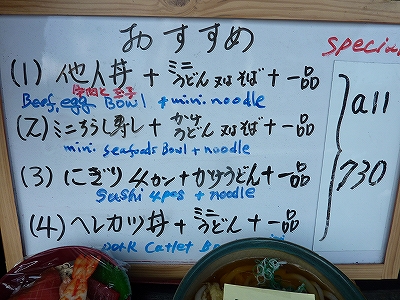 おすすめ
special
(1) 他人丼 + ミニうどん 又は そば + 一品
牛肉と玉子
Beef, egg Bowl + mini noodle
(2) ミニちらし寿し + かけうどん 又は そば + 一品
mini seafoods Bowl + noodle
(3) にぎり 4カン + かけうどん + 一品
Sushi 4pcs + noodle
(4) ヘレカツ丼 + ミニうどん + 一品
pork Catlet
all
730